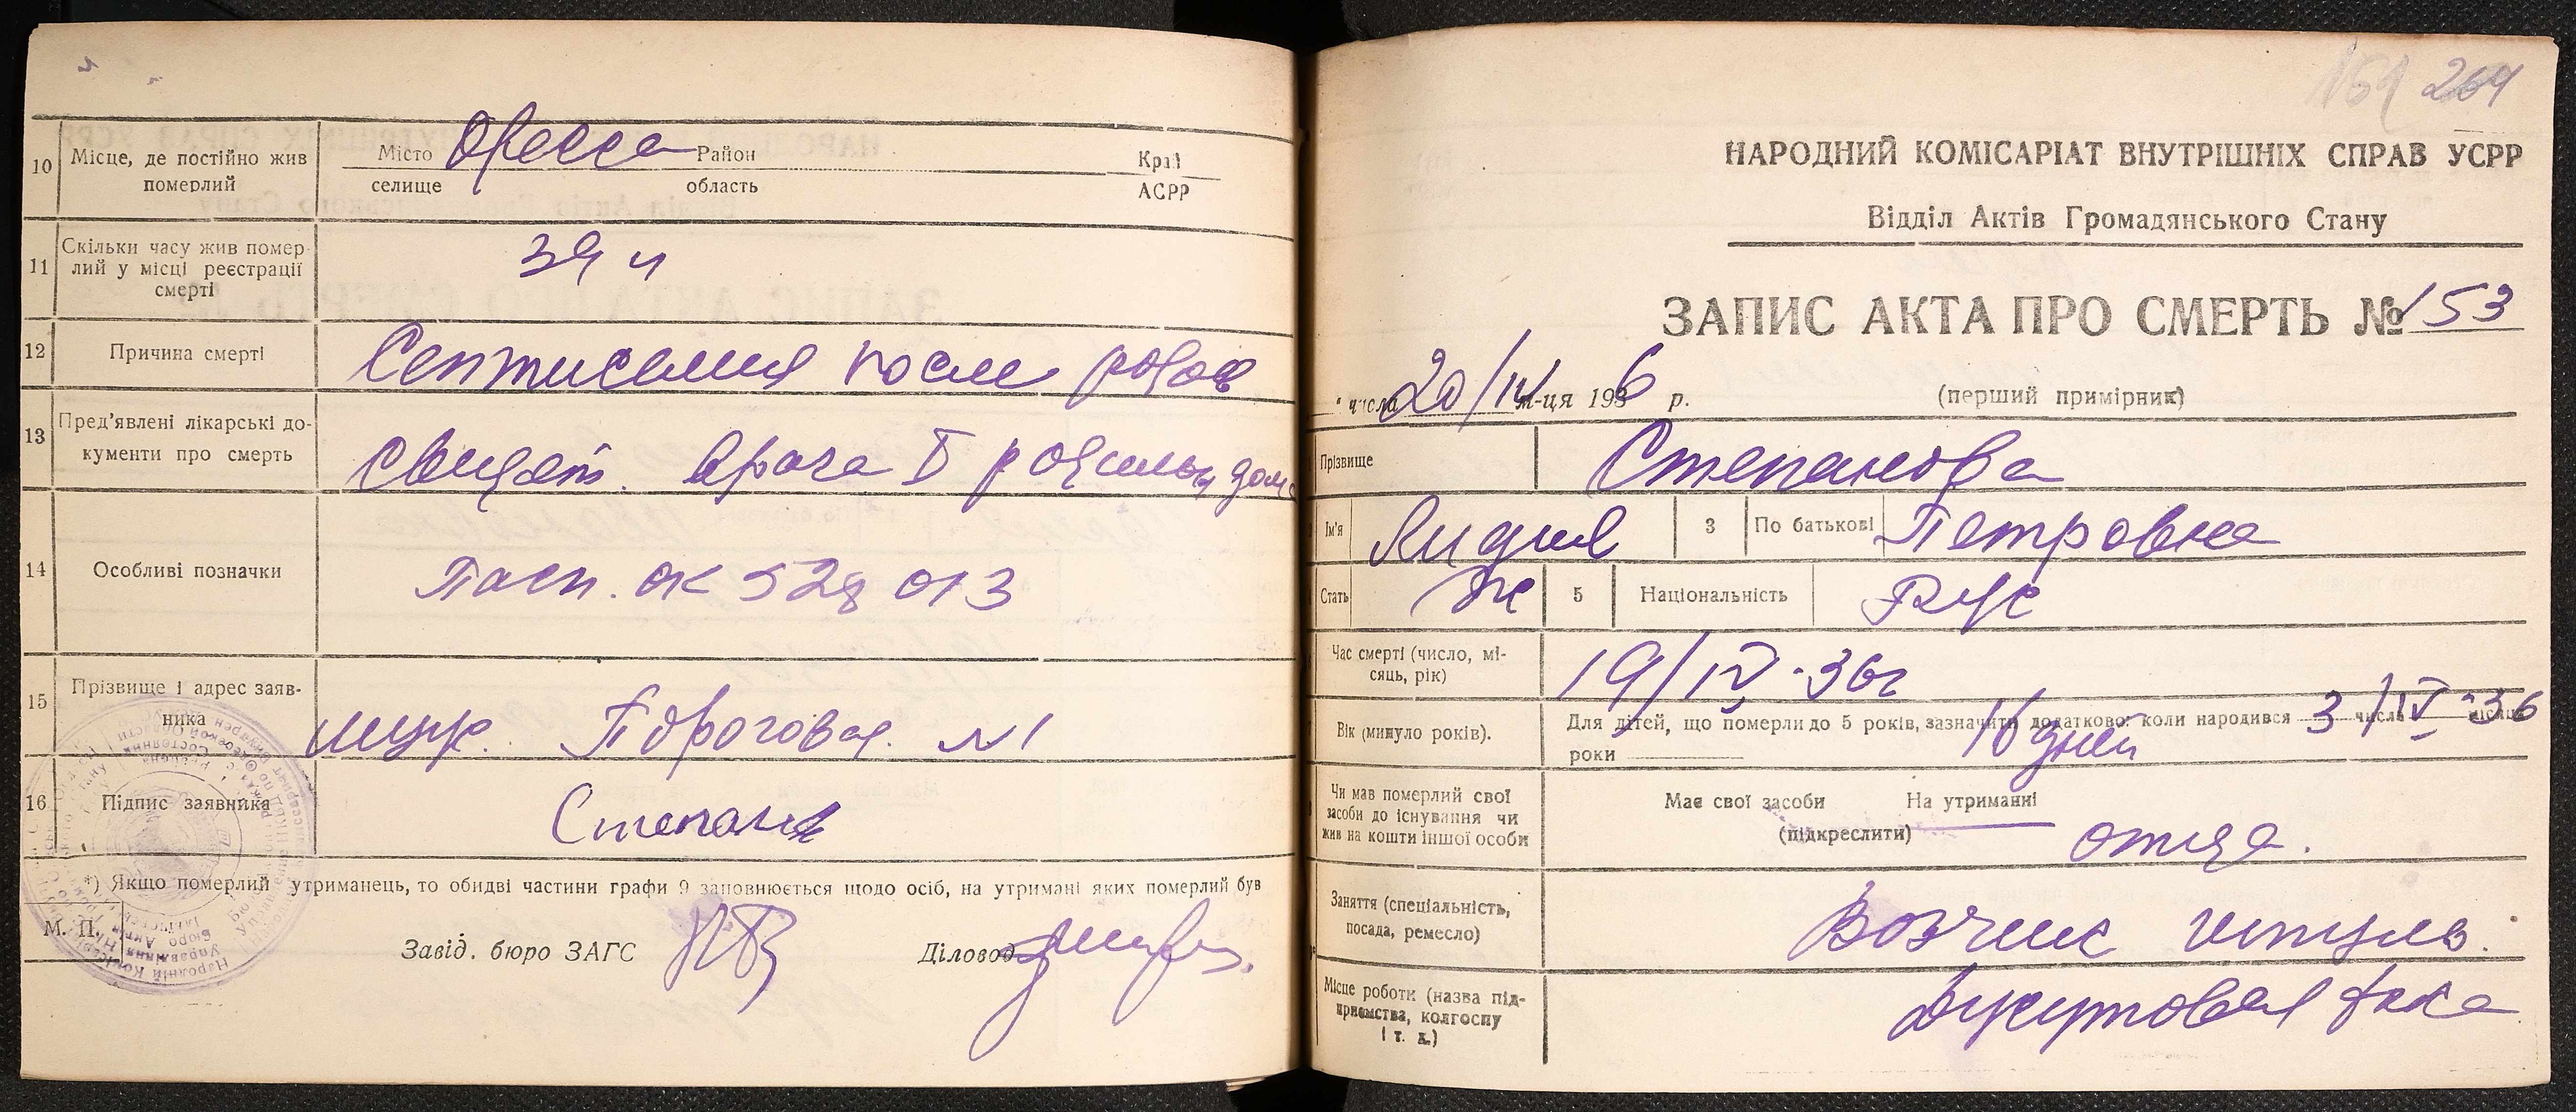 10 Місце, де постійно жив померлий
Місто Одесса Район Край
селище область АСРР
11 Скільки часу жив померлий у місці реєстрації смерті
12 Причина смерті
Септисемия после родов
13 Пред'явлені лікарські документи про смерть
Свидет. врача родильн дома
14 Особливі позначки
Пасп. ОК 528 013
15 Прізвище і адрес заявника
№ 1
16 Підпис заявника
*) Якщо померлий утриманець, то обидві частини графи 9 заповнюється щодо осіб, на утримані яких померлий був
М. П.
Завід. бюро ЗАГС
Діловод
264
НАРОДНИЙ КОМІСАРІАТ ВНУТРІШНІХ СПРАВ УСРР
Відділ Актів Громадянського Стану
ЗАПИС АКТА ПРО СМЕРТЬ № 153
" числа 20/IV м-ця 1936 р. (перший примірник)
Прізвище
Степанова
Ім'я Лидия 3 По батькові Петровна
Стать Ж 5 Національність Рус
Час смерті (число, місяць, рік)
19/IV-36г
Вік (минуло років).
Для дітей, що померли до 5 років, зазначити додатково: коли народився 3 числа /IV-36 місяця
роки 16 дней
Чи мав померлий свої засоби до існування чи жив на кошти іншої особи
Має свої засоби На утриманні
(підкреслити) отца.
Заняття (спеціальність, посада, ремесло)
Возчик
Місце роботи (назва підприємства, колгоспу і т. д.)
Джутовая ф-ка